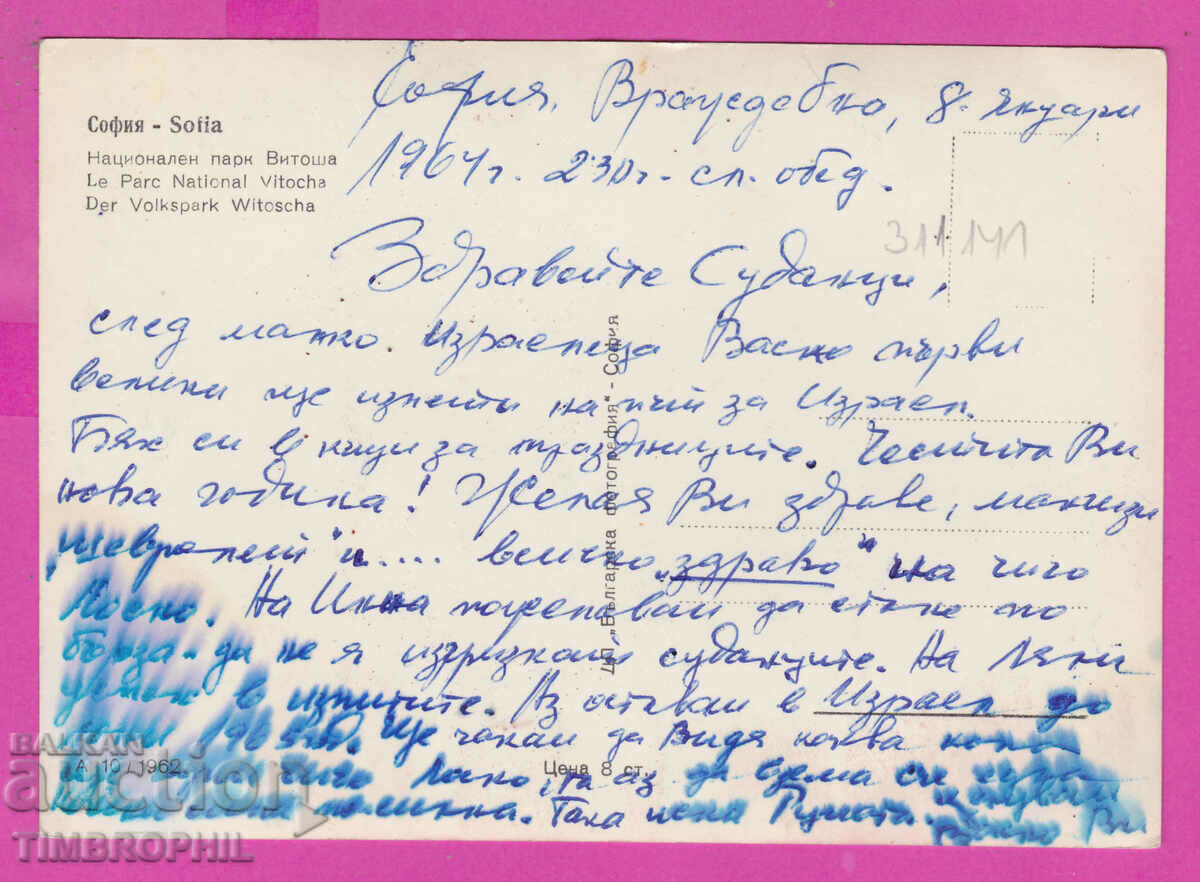 София - Sofia
Национален парк Витоша
Le Parc National Vitocha
Der Volkspark Witoscha
София, Враждебна, 8. януари
1964 г. 2³⁰ г. сл. обед.
311141
Здравейте Суданци,
след малко израелеца Васко първи
велики ще излети на път за Израел.
Бях си в къщи за празниците. Честита Ви
нова година! Желая Ви здраве,
"шевролет" и .... всичко "здраво" на чичо
Лоско. На Инна пожелавам да стане по
бърза - да не я изгризкат суданците. На Ляни
успех в изпитите. Аз оставам в Израел до
1965 год. Ще чакам да видя каква кола
чичо Лоско, та аз да взема
Така иска
Васко Ви
ДП "Българска фотография" - София
А 10 / 1962
Цена 8 ст.
BALKAN
auction
TIMBROPHIL